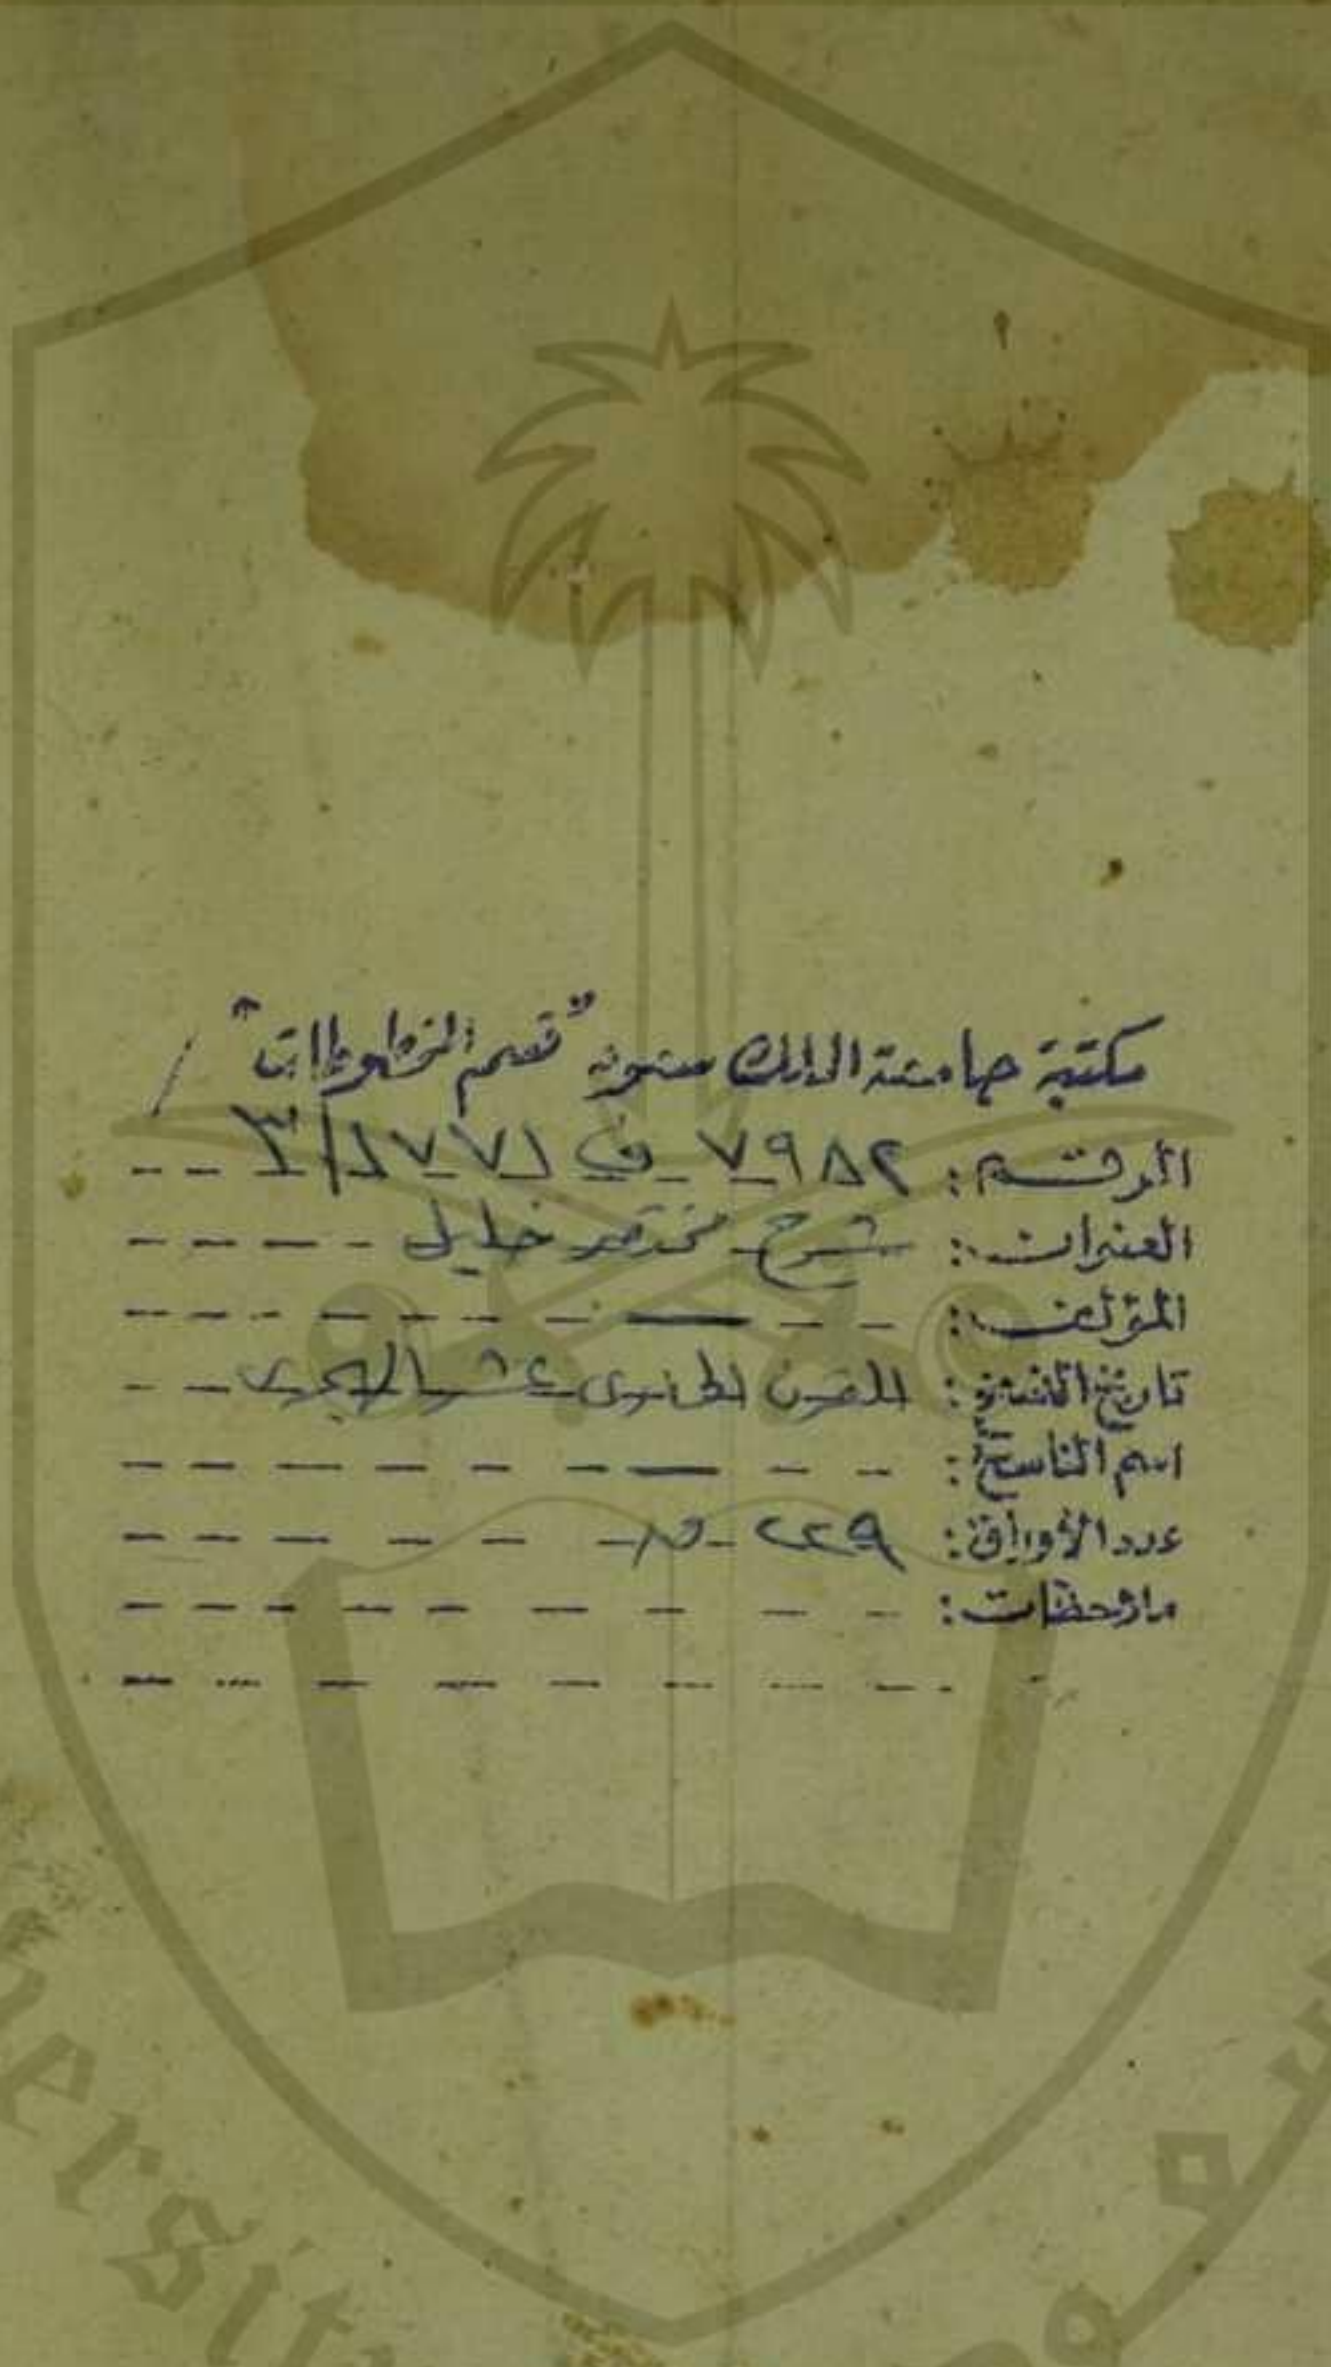 مكتبة جامعة الملك سعود "قسم المخطوطات"
الرقم: ٧٩٨٢ ف ١٧٧١/٣
العنوان: شرح مختصر خليل
المؤلف:
تاريخ النسخ: القرن الحادي عشر الهجري
اسم الناسخ:
عدد الأوراق: ٢٢٩ ق
ملاحظات: